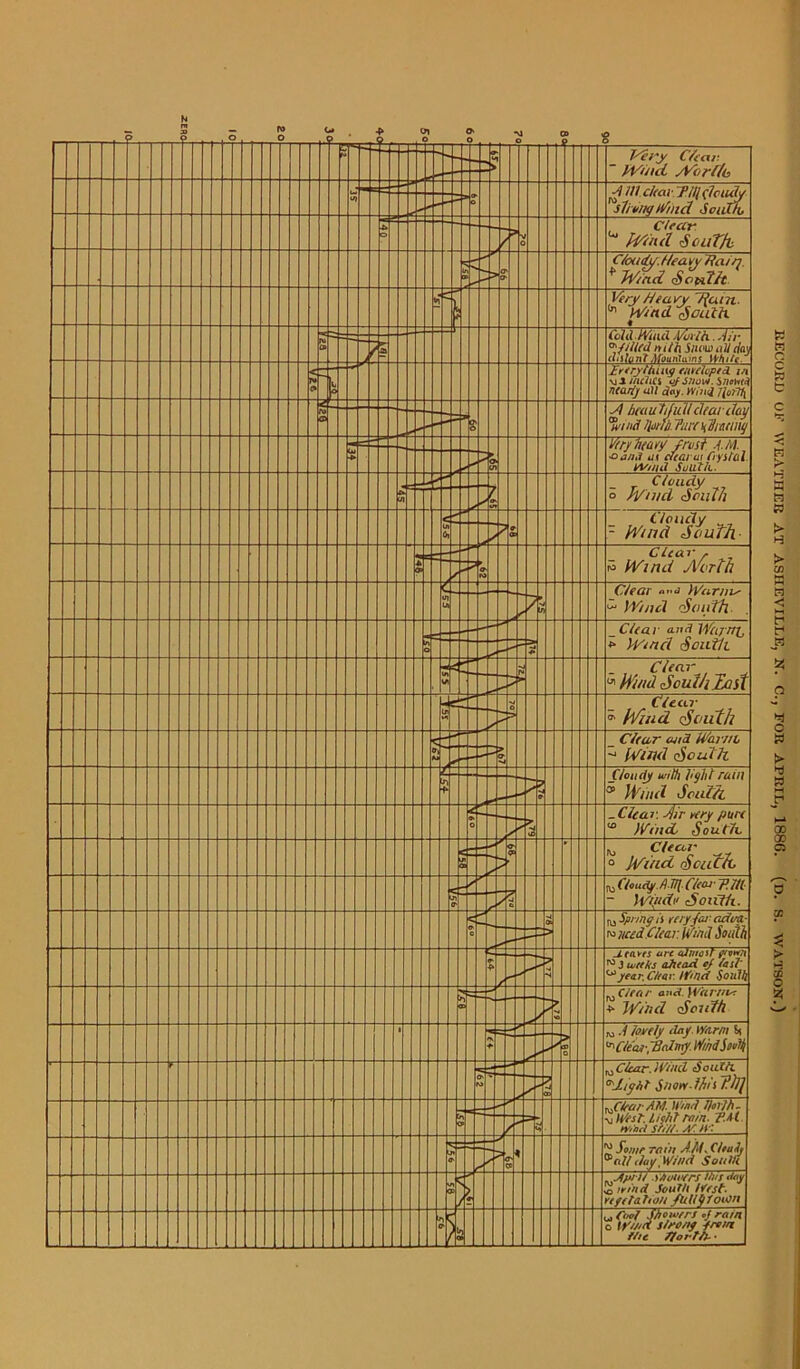 ZERO
10 10 20 30 40 50 60 70 80 90
1 Very Clear.
Wind North
2 A.M. clear. P.M. cloudy
Strong Wind South
3 Clear.
Wind South
4 Cloudy. Heavy Rain.
Wind South
5 Very Heavy Rain.
Wind South
6 Cold Wind North. Air
filled with Snow all day
distant Mountains White.
7 Everything enveloped in
inches of Snow. Snowed
nearly all day. Wind North
8 A beautifull clear day
Wind North. Pure & Bracing
9 Very heavy frost A.M.
and as clear as Crystal
Wind South.
10 Cloudy
Wind South
11 Cloudy
Wind South
12 Clear
Wind North
13 Clear and Warm
Wind South.
14 Clear and Warm
Wind South
15 Clear
Wind South East
16 Clear
Wind South
17 Clear and Warm
Wind South
18 Cloudy with light rain
Wind South
19 Clear. Air very pure
Wind South
20 Clear
Wind South
21 Cloudy. A.M. Clear P.M.
Wind South.
22 Spring is very far adva-
nced. Clear. Wind South
23 Leaves are almost grown
3 weeks ahead of last
year. Clear. Wind South
24 Clear and Warm
Wind South
25 A lovely day. Warm &
Clear, Balmy. Wind South
26 Clear. Wind South
Light Snow this P.M.
27 Clear AM. Wind North-
West. Light rain. P.M.
Wind still. N. W.
28 Some rain A.M. Cloudy
all day, Wind South
29 April showers this day
wind South West.
vegetation full grown
30 Cool Showers of rain
Wind strong from
the North.
32 65
35 60
40 70
58 66
51
28
26
28 60
34 65
45 65
55 68
46 62
55 75
50 74
55 72
55 70
62 67
54 76
60 79
58 68
56 70
60 78
58 79
64 80
62 78
56
56 68
58 61
56 58
RECORD OF WEATHER AT ASHEVILLE, N. C., FOR APRIL, 1886. (D. S. WATSON.)